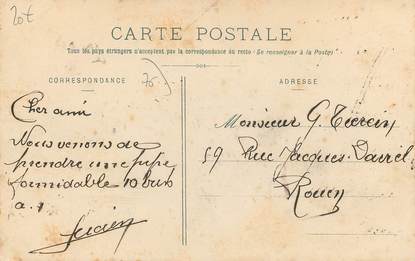 20t
CARTE POSTALE
Tous les pays étrangers n'acceptent pas la correspondance au recto (Se renseigner à la Poste)
CORRESPONDANCE
ADRESSE
Cher ami
Nous venons de
prendre une pipe
formidable 10 buts
à 1
Lucien
Monsieur G.
59 Rue Jacques-Daviel
Rouen